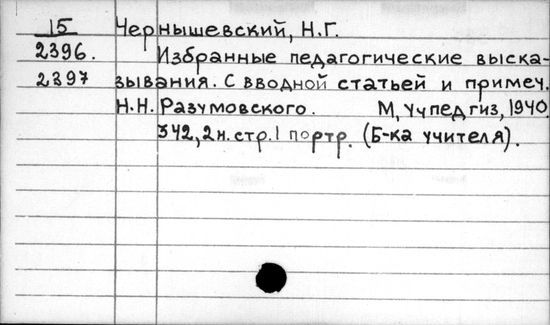 15 Чернышевский, Н.Г.
2396. Избранные педагогические выска-
2397 зывания. С вводной статьей и примеч.
Н.Н. Разумовского. М, Учпедгиз, 1940.
342, 2 н. стр. 1 портр. (Б-ка учителя).